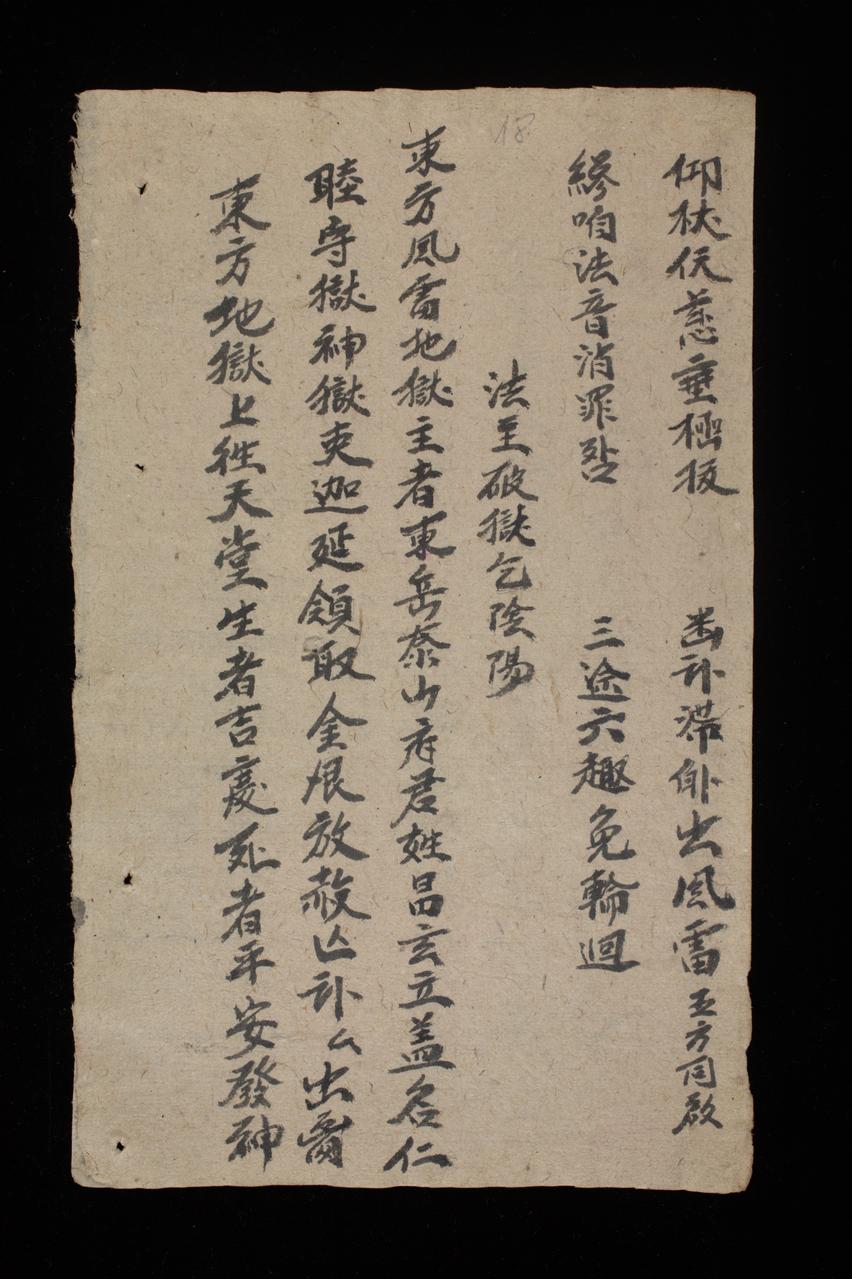 仰杖仸慈垂極拔 𡿺卟滞㑉出風雷五方同啟
緣咱法音消罪愆 三途六趣免輪迴
法王破獄乞陰陽
東方風雷地獄主者東岳泰山府君姓昌玄立盖名仁
睦守獄神獄吏迦延領取金艮放赦亡卟厶出离
東方地獄上徃天堂生者吉慶死者平安發神
18